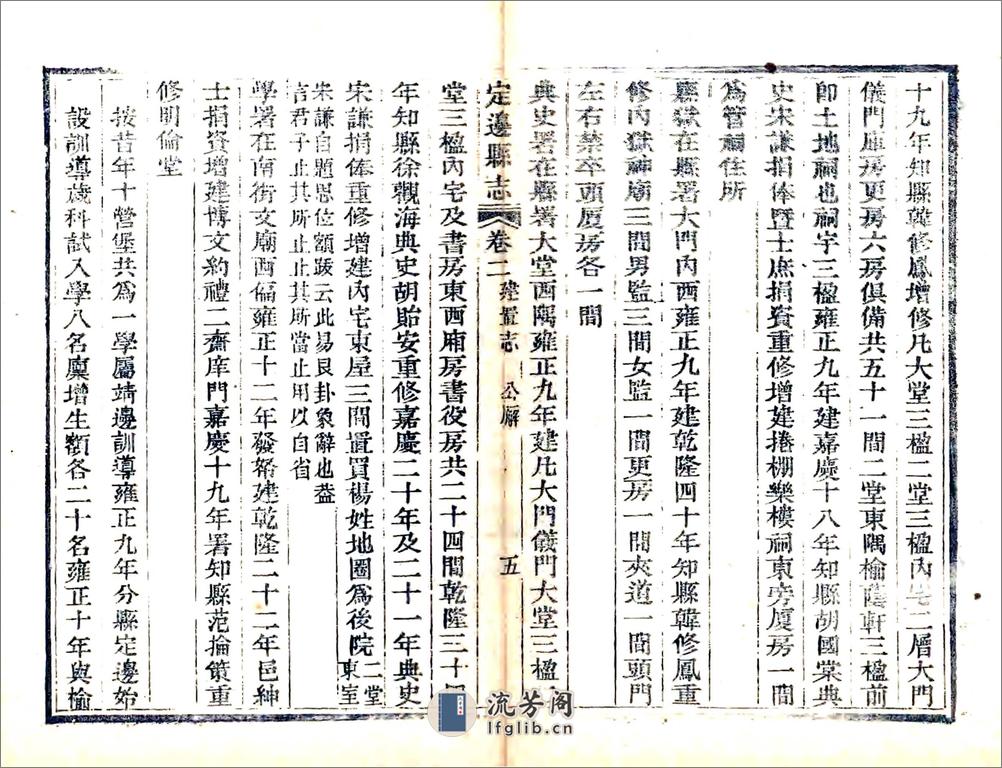 十九年知縣韓修鳳增修凡大堂三楹二堂三楹內宅二層大門
儀門庫房更房六房俱備共五十一間二堂東隅榆蔭軒三楹前
即土地祠也祠宇三楹雍正九年建嘉慶十八年知縣胡國棠典
史宋謙捐俸暨士庶捐資重修增建捲棚樂樓祠東旁廈房一間
為管祠住所
縣獄在縣署大門內西雍正九年建乾隆四十年知縣韓修鳳重
修內獄神廟三間男監三間女監一間更房一間夾道一間頭門
左右禁卒頭廈房各一間
典史署在縣署大堂西隅雍正九年建凡大門儀門大堂三楹
定邊縣志 卷二 建置志 公廨 五
堂三楹內宅及書房東西廂房書役房共二十四間乾隆三十
年知縣徐觀海典史胡貽安重修嘉慶二十年及二十一年典史
宋謙捐俸重修增建內宅東屋三間置買楊姓地圈為後院二堂東室
宋謙自題思位額跋云此易艮卦象辭也蓋
言君子止其所止止其所當止用以自省
學署在南街文廟西偏雍正十二年發帑建乾隆二十二年邑紳
士捐資增建博文約禮二齋庠門嘉慶十九年署知縣范掄策重
修明倫堂
按昔年十營堡共為一學屬靖邊訓導雍正九年分縣定邊始
設訓導歲科試入學八名廩增生額各二十名雍正十年與榆
流芳阁
lfglib.cn